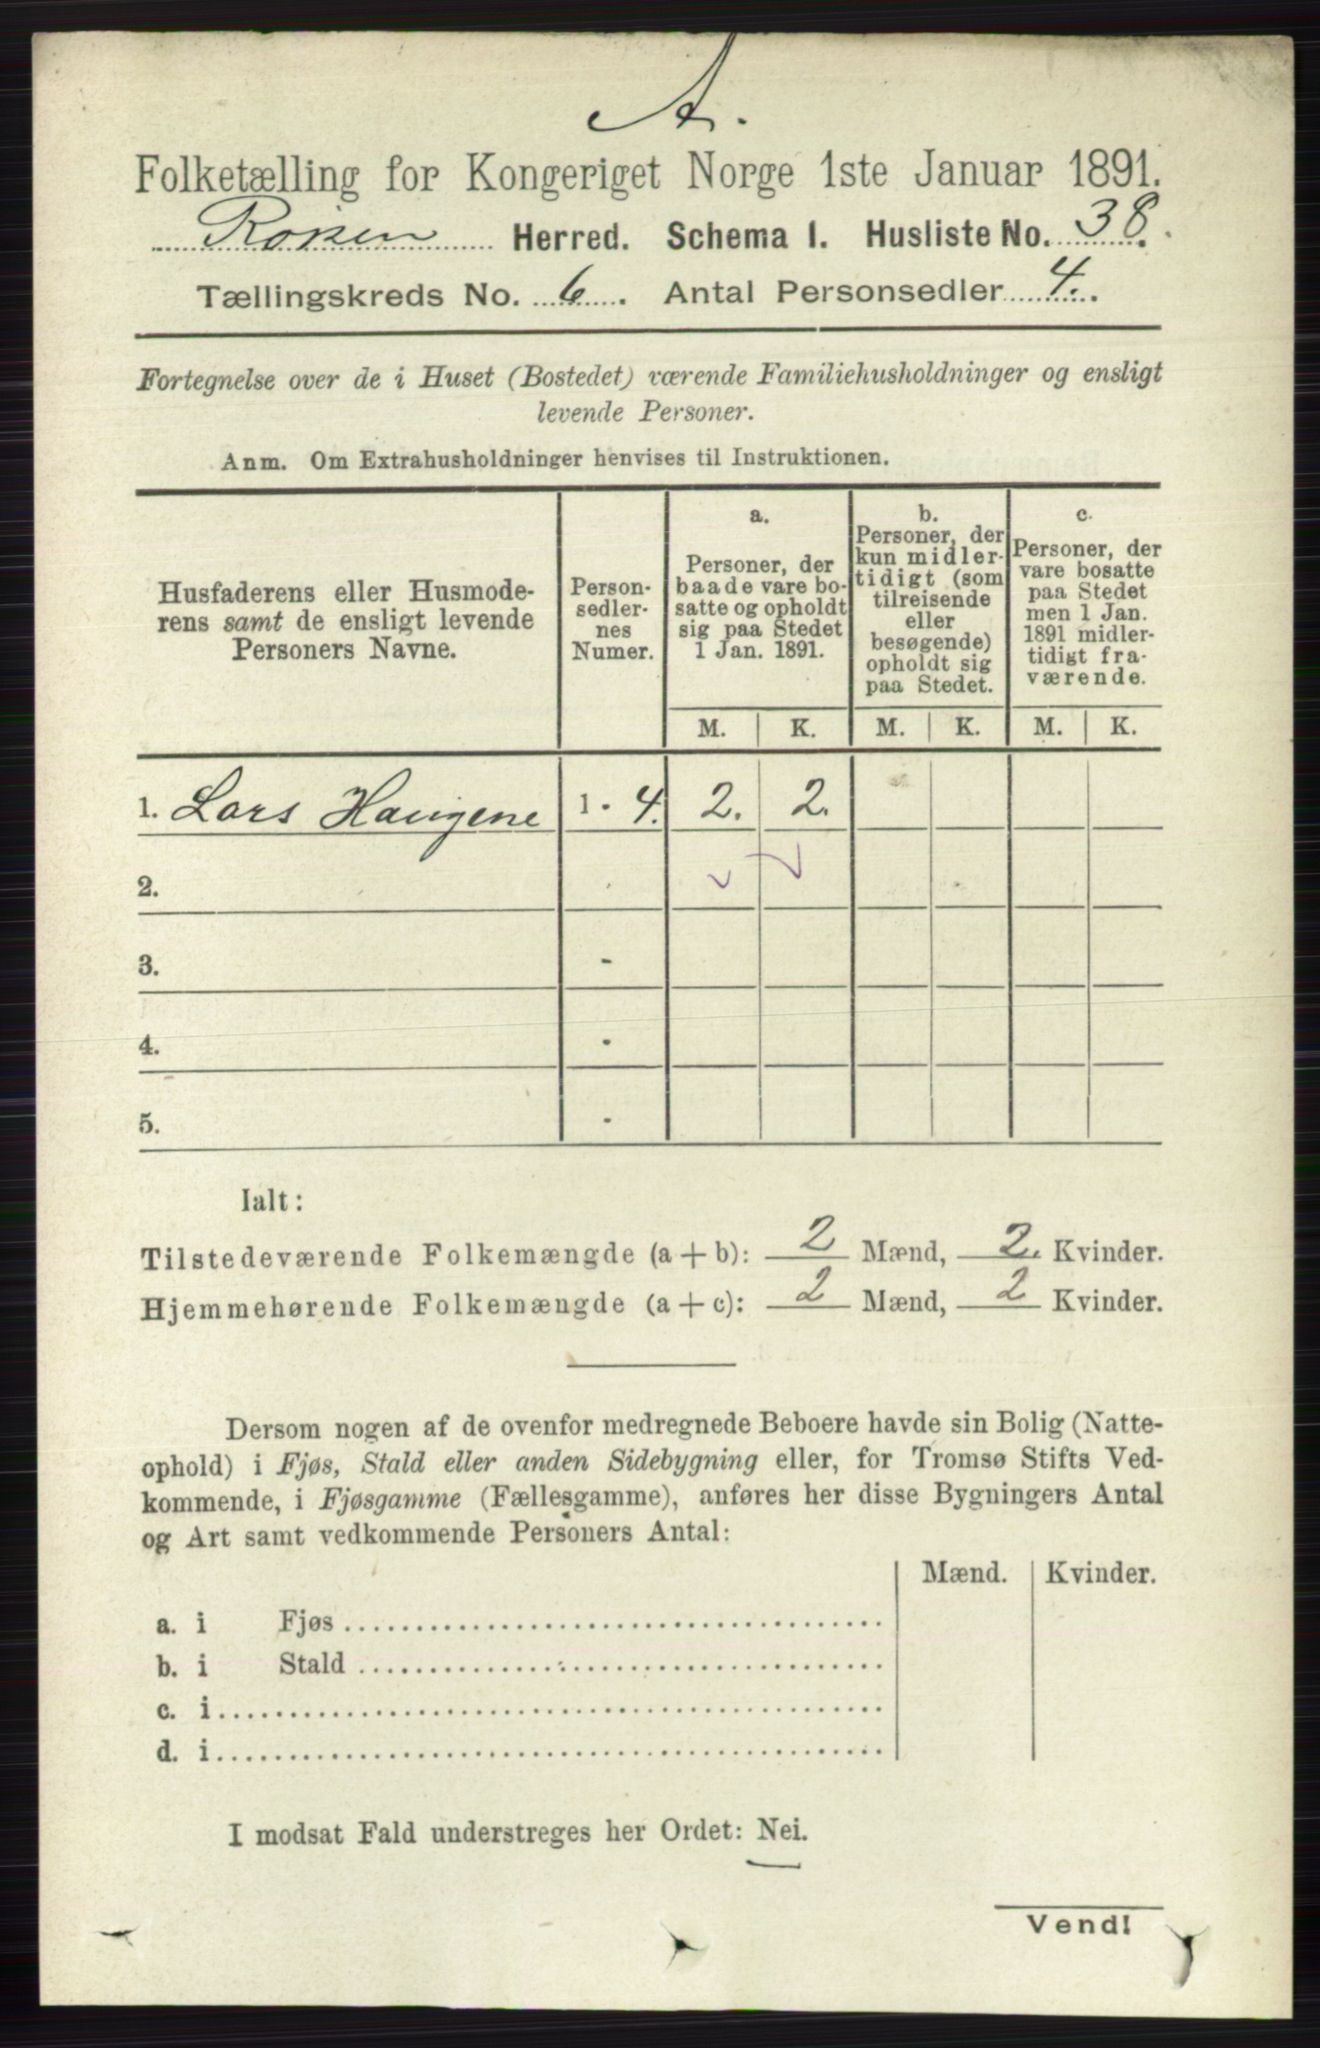 A.
Folketælling for Kongeriget Norge 1ste Januar 1891.
Røken Herred. Schema I. Husliste No. 38.
Tællingskreds No. 6. Antal Personsedler 4.
Fortegnelse over de i Huset (Bostedet) værende Familiehusholdninger og ensligt
levende Personer.
Anm. Om Extrahusholdninger henvises til Instruktionen.
Husfaderens eller Husmode-
rens samt de ensligt levende
Personers Navne.
Person-
sedler-
nes
Numer.
a.
Personer, der
baade vare bo-
satte og opholdt
sig paa Stedet
1 Jan. 1891.
b.
Personer, der
kun midler-
tidigt (som
tilreisende
eller
besøgende)
opholdt sig
paa Stedet.
c.
Personer, der
vare bosatte
paa Stedet
men 1 Jan.
1891 midler-
tidigt fra-
værende.
M. K. M. K. M. K.
1. Lars Haugene 1 - 4. 2. 2.
2.
3. -
4. -
5. -
Ialt:
Tilstedeværende Folkemængde (a + b): 2 Mænd, 2. Kvinder.
Hjemmehørende Folkemængde (a + c): 2 Mænd, 2 Kvinder.
Dersom nogen af de ovenfor medregnede Beboere havde sin Bolig (Natte-
ophold) i Fjøs, Stald eller anden Sidebygning eller, for Tromsø Stifts Ved-
kommende, i Fjøsgamme (Fællesgamme), anføres her disse Bygningers Antal
og Art samt vedkommende Personers Antal:
Mænd. Kvinder.
a. i Fjøs
b. i Stald
c. i
d. i
I modsat Fald understreges her Ordet: Nei.
Vend!